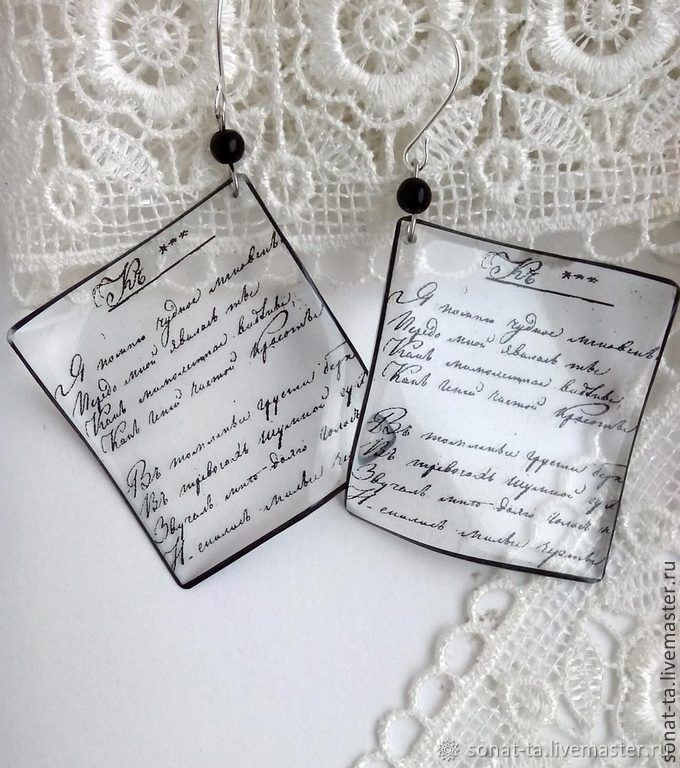 Къ ***
Я помню чудное мгновень
Передо мной явилась ты
Какъ мимолетное видѣнье,
Какъ гений чистой красоты
Въ томленьи грусти без
Въ тревогахъ шумной суе
Звучалъ мнѣ долго голосъ
И снились милые черты
Къ ***
Я помню чудное мгновень
Передо мной явилась ты
Какъ мимолетное видѣнье,
Какъ гений чистой красоты
Въ томленьи грусти безн
Въ тревогахъ шумной суе
Звучалъ мнѣ долго голосъ н
И снились милые черты
sonat-ta.livemaster.ru
sonat-ta.livemaster.ru